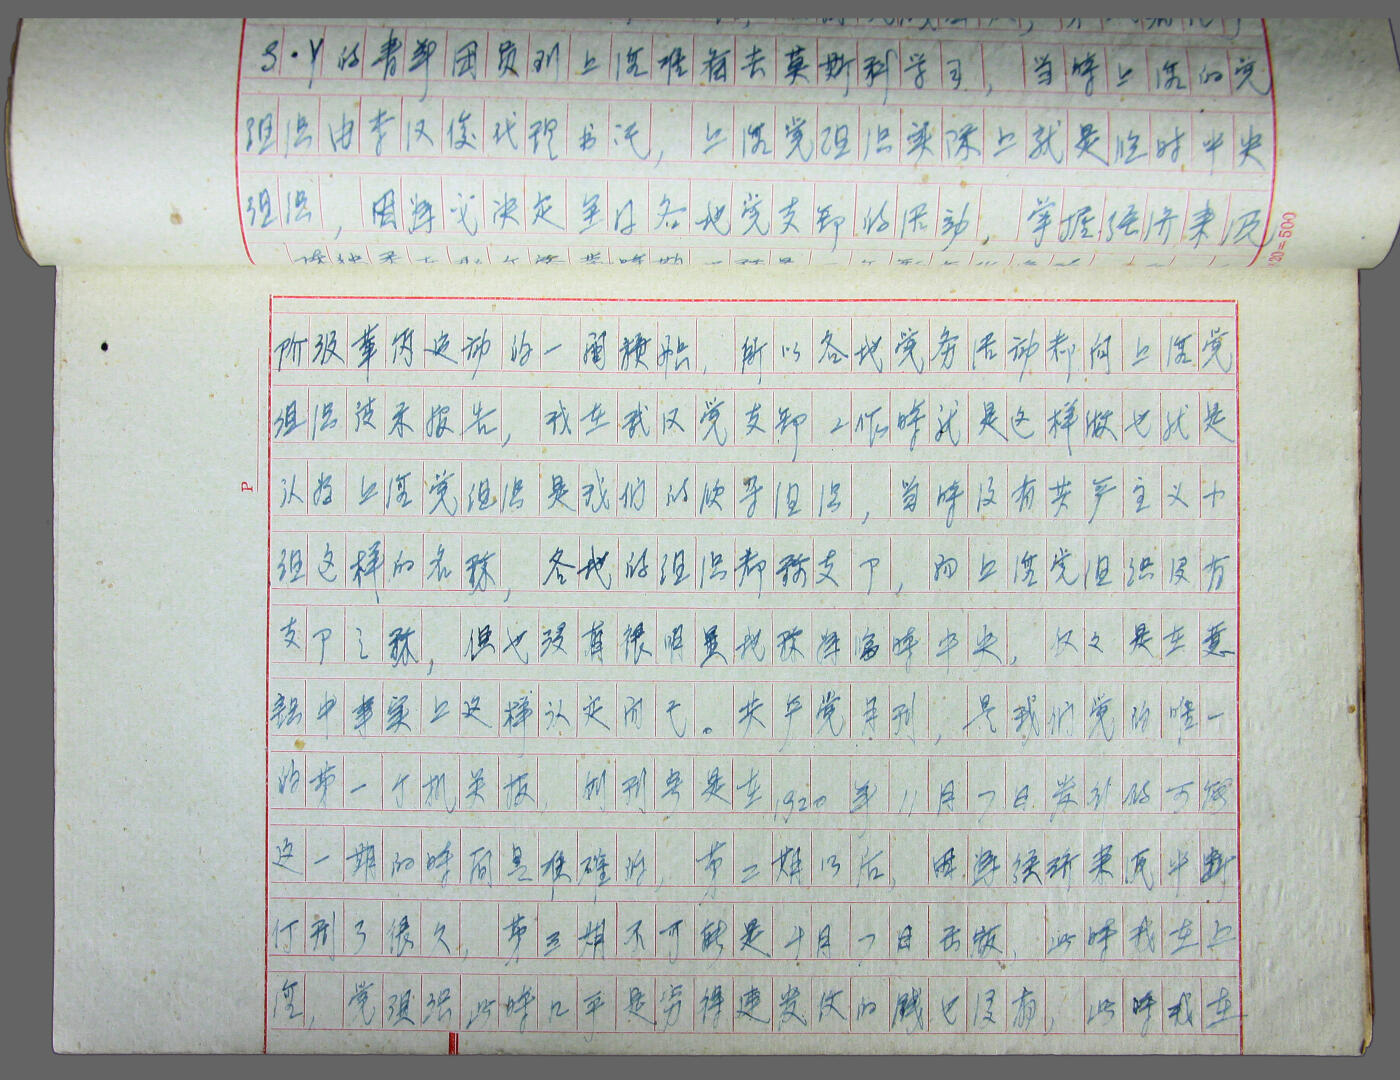 S·Y的青年团员到上海准备去莫斯科学习，当时上海的党
组织由李汉俊代理书记，上海党组织实际上就是临时中央
组织，因为它决定全国各地党支部的活动，掌握经济来源
20=500
阶级革命运动的一开始，所以各地党务活动都向上海党
组织请示报告，我在武汉党支部工作时就是这样做也就是
认为上海党组织是我们的领导组织，当时没有共产主义小
组这样的名称，各地的组织都称支卩，而上海党组织没有
支卩之称，但也没有很明显地称为临时中央，仅仅是在意
识中事实上这样认定而已。共产党月刊，是我们党的唯一
的第一个机关报，创刊号是在1920年11月7日发行的可能
这一期的时间是准确的，第二期以后，因为经济来源中断
停刊了很久，第三期不可能是十月7日出版，此时我在上
海，党组织此时几乎是穷得连发信的钱也没有，此时我在
P